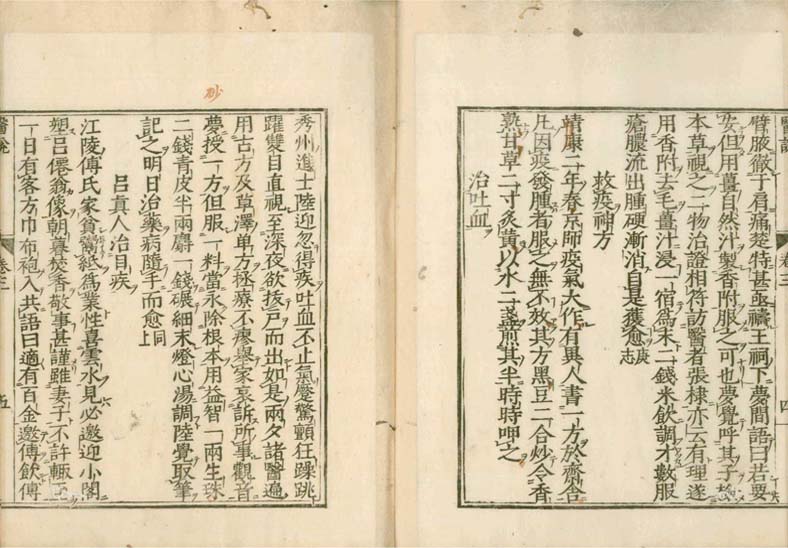 醫說 卷三 四
臂腋徹于肩痛楚特甚亟禱王祠下夢間語曰若要
安但用薑自然汁製香附服之可也夢覺呼其子檢
本草視之二物治證相符訪醫者張棣亦云有理遂
用香附去毛薑汁浸一宿爲末二錢米飲調才數服
瘡膿流出腫硬漸消自是獲愈庚志
救疫神方
靖康二年春京師疫氣大作有異人書一方於齋舍
凡因疫發腫者服之無不效其方黑豆二合炒令香
熟甘草二寸炙黃以水二盞煎其半時時呷之
治吐血
秀州進士陸迎忽得疾吐血不止氣蹙驚顫狂躁跳
躍雙目直視至深夜欲拔戶而出如是兩夕諸醫遍
用古方及草澤单方極療不瘳舉家哀訴所事觀音
砂
夢授一方但服一料當永除根本用益智一兩生珠
二錢青皮半兩麝一錢碾細末燈心湯調陸覺取筆
記之明日治藥病隨手而愈同上
呂眞人治目疾
江陵傅氏家貧鬻紙爲業性喜雲水見必邀迎小閣
塑呂僊翁像朝暮焚香敬事甚謹雖妻子不許輒至
一日有客方巾布袍入共語曰適有百金邀傅飲傅
醫說 卷三 五